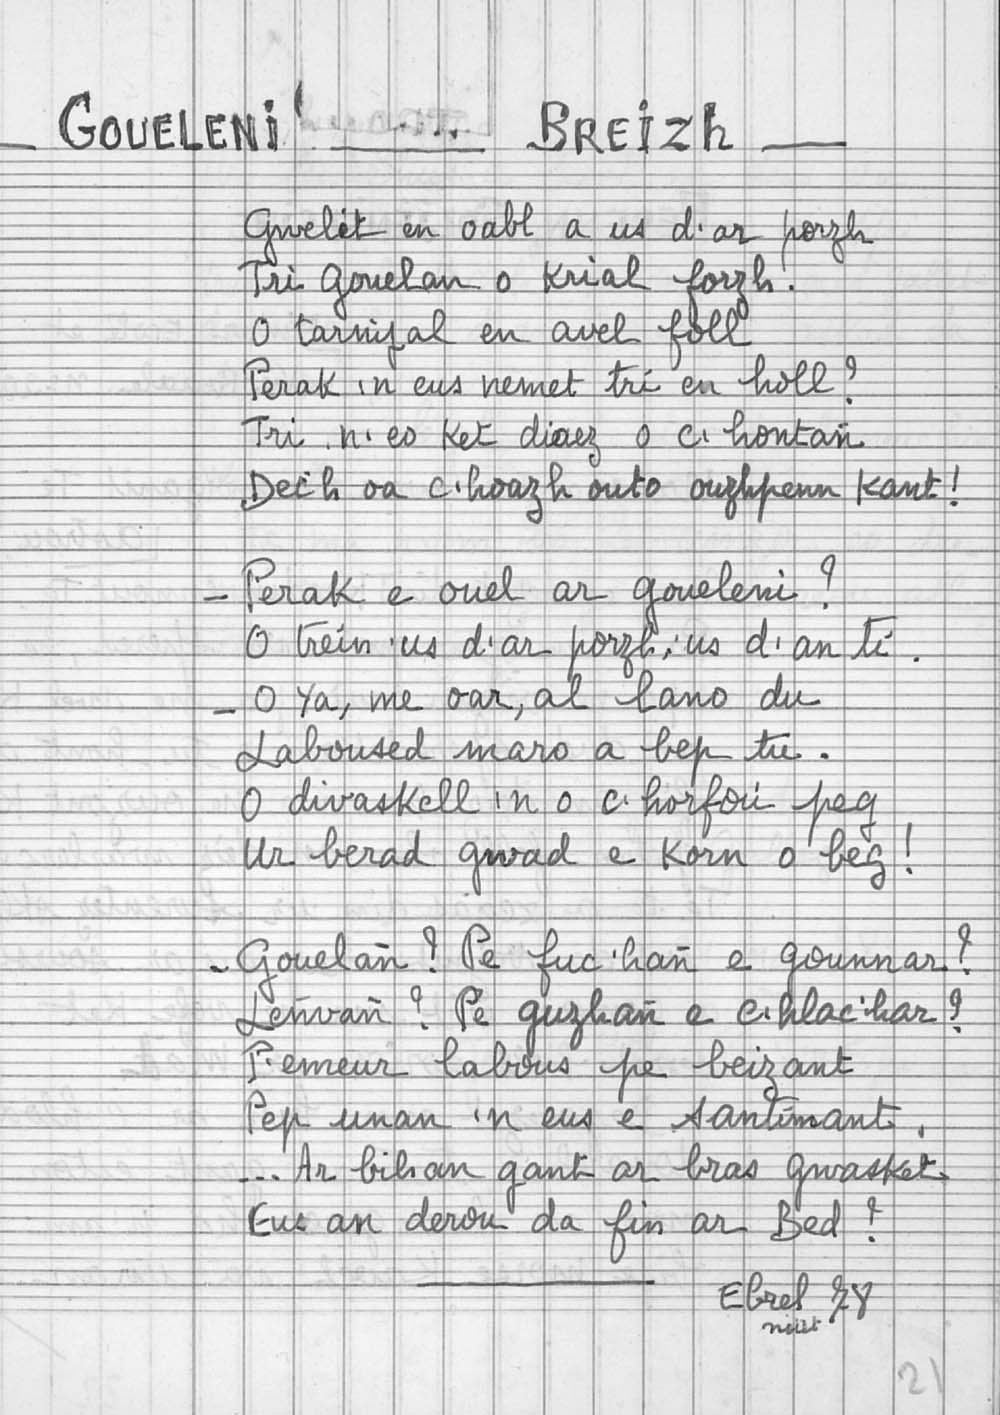 GOUELENI' ... BREIZh
Gwelét en oabl a us d'ar porzh
Tri Gouelan o Krial forzh.
O tarnijal en avel foll
Perak 'n eus nemet tri en holl?
Tri n'eo Ket diaez o c'hontañ
Dec'h oa c'hoazh outo ouzhpenn Kant!
- Perak e ouel ar goueleni?
O treiñ 'us d'ar porzh, 'us d'an ti.
- O Ya, me oar, al lano du
Laboused maro a bep tu.
O divaskell 'n o c'horfoù peg
Ur berad gwad e Korn o beg!
- Gouelañ? Pe fuc'hañ e gounnar?
Leñvañ? Pe guzhañ e c'hlac'har?
P'emeur labous pe beizant
Pep unan 'n eus e santimant.
... Ar bihan gant ar bras Gwasket
Eus an derou da fin ar Bed?
Ebrel 78
21